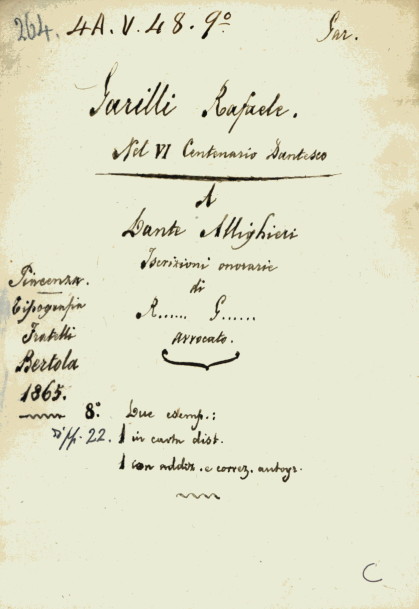 264. 4A.V.48.9º Gar.
Garilli Rafaele.
Nel VI Centenario Dantesco
A
Dante Allighieri
Iscrizioni onorarie
di
R...... G......
avvocato.
Piacenza.
Tipografia
Fratelli
Bertola
1865.
8º. Due esemp.:
di pp. 22. 1 in carta dist.
1 con addiz. e correz. autogr.
C